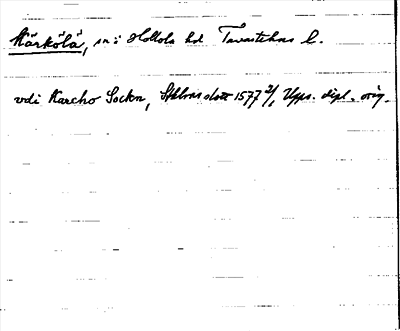 Kärkölä, sn i Hollola hd Tavastehus l.
vdi Karcho Sockn, Sthlms slott 1577 2/1, Upps. dipl. orig.